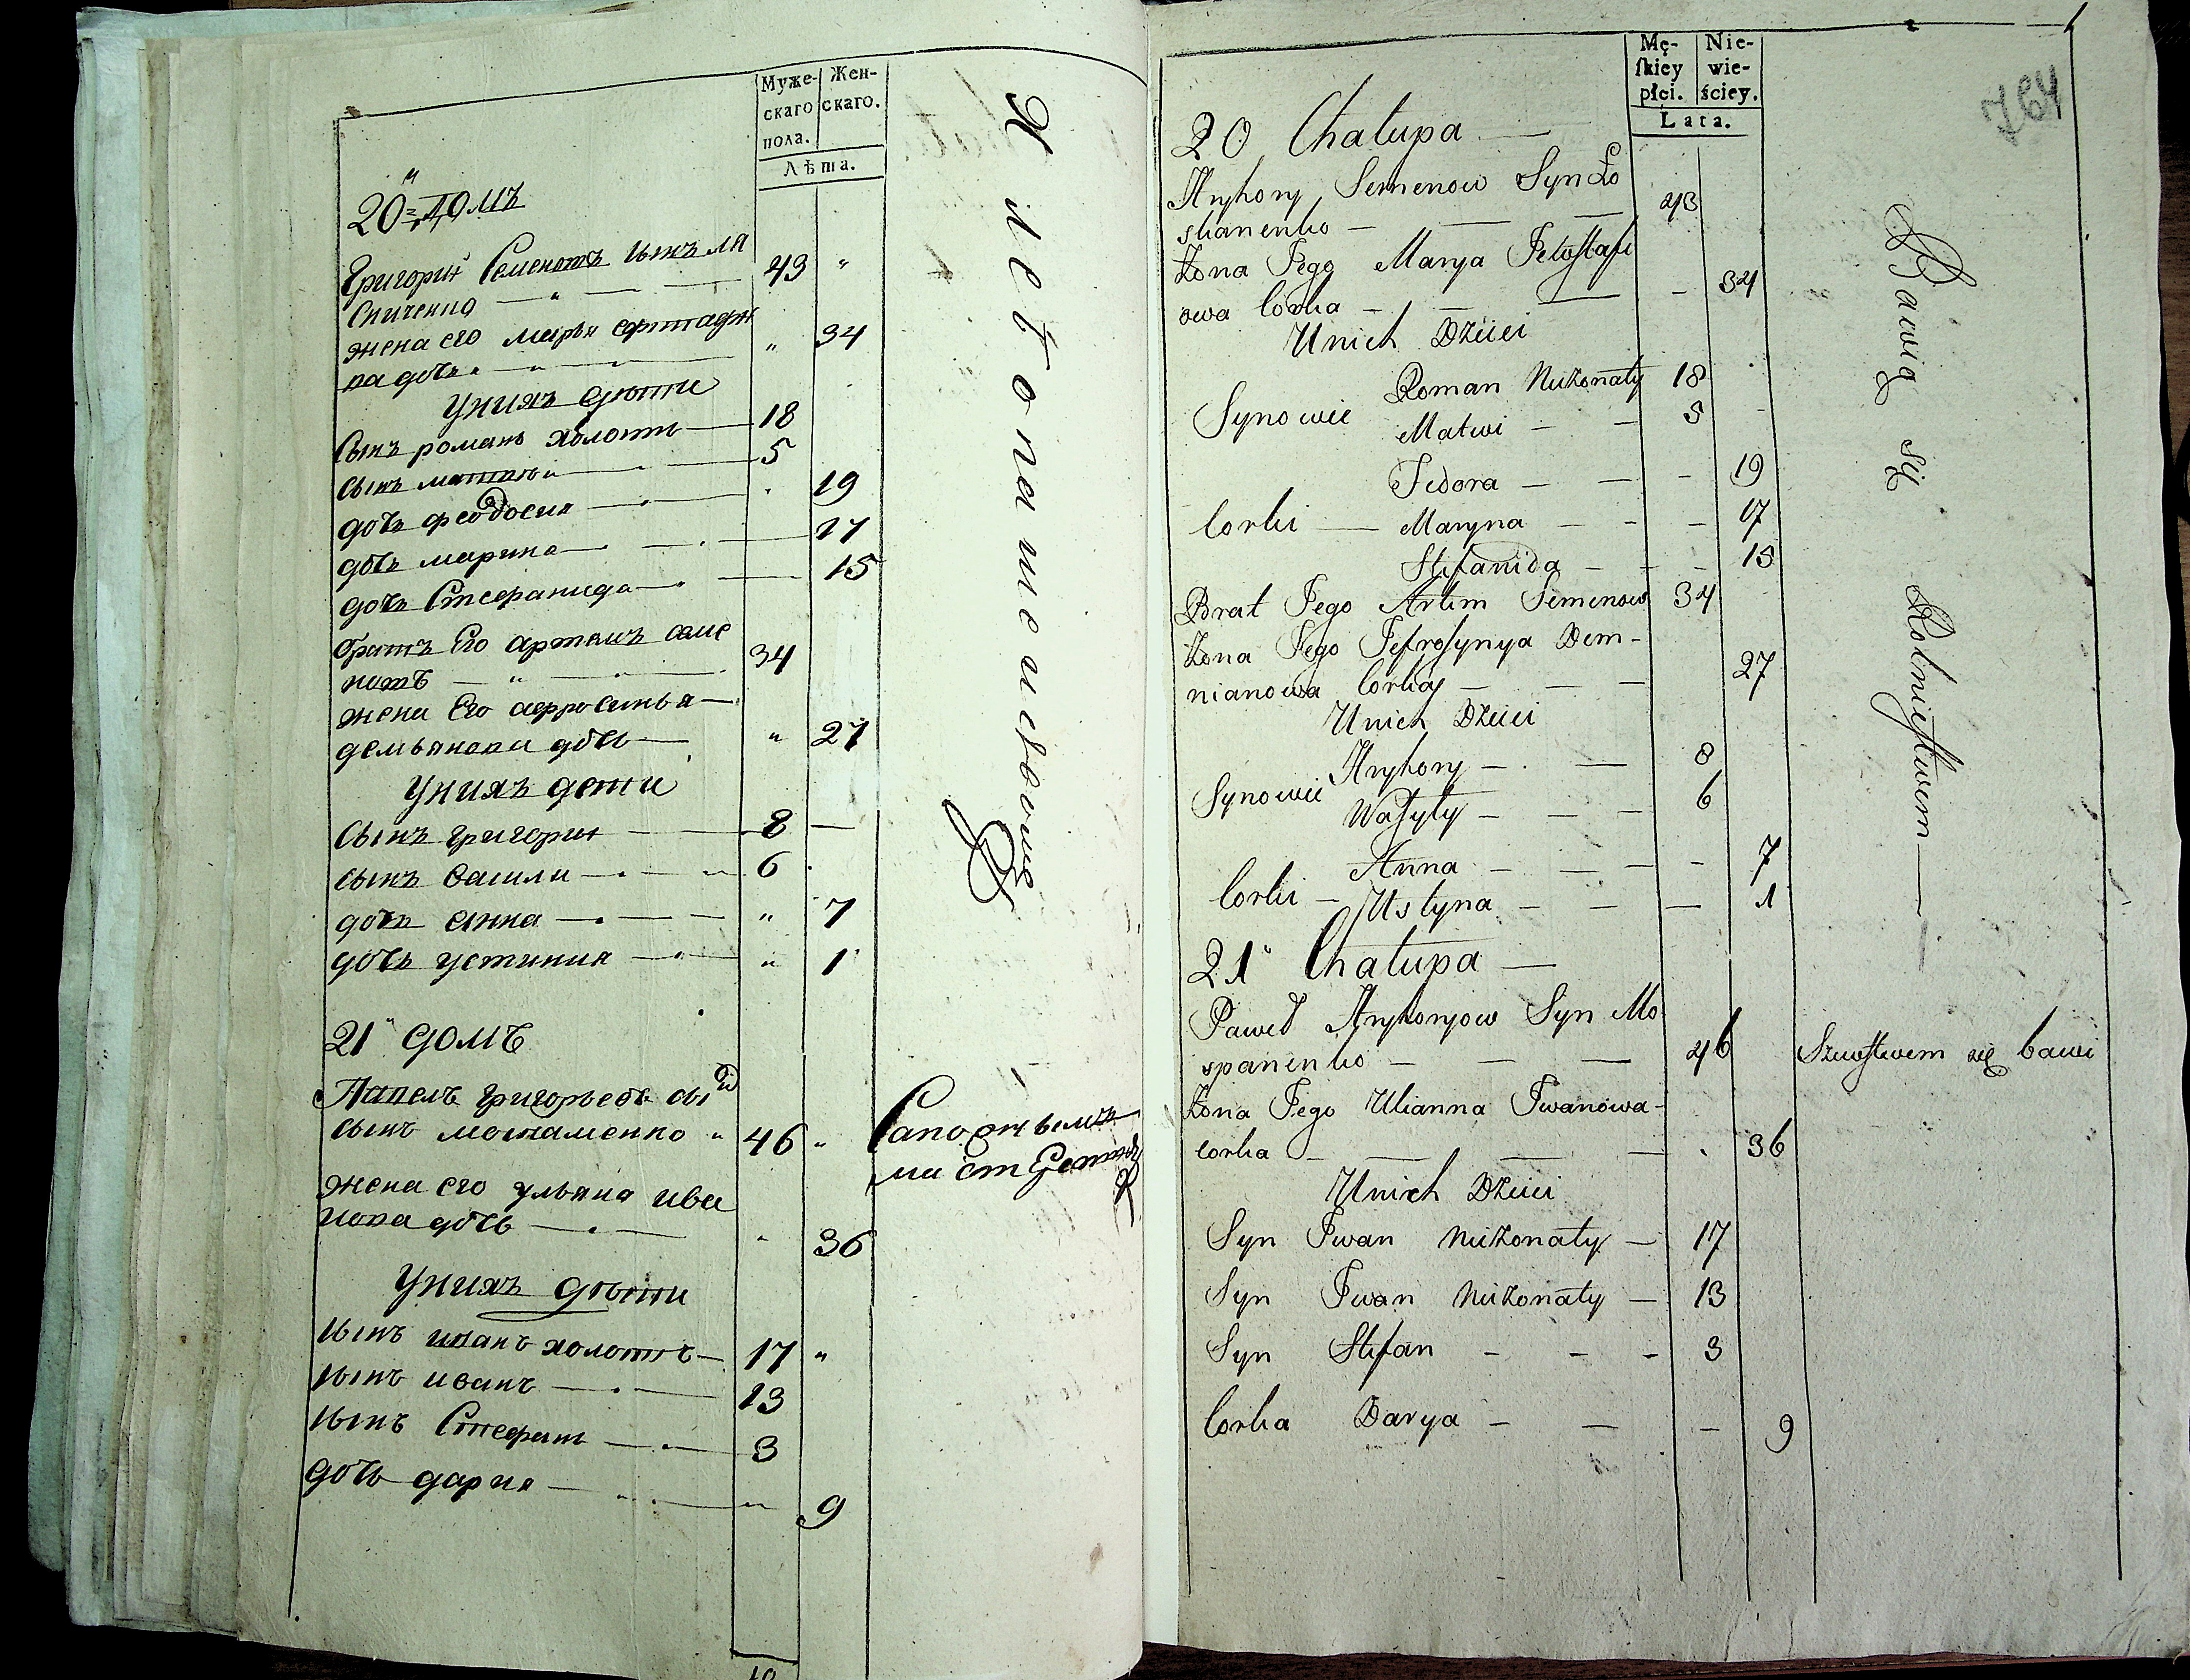 Муже-
скаго
пола.
Жен-
скаго.
Лѣта.
20й домъ
Григорій Семеновъ сынъ Ля
43 "
жена его марья
" 34
ва дочь
Унихъ дѣти
Сынъ романъ холотъ 18
сынъ матвѣи 5
дочь феодосия 19
дочь марина 17
дочь Стефанида 15
братъ Его артемъ семе
новъ 34
жена Его
демьянова дочь " 27
Унихъ дети
сынъ григории 8
сынъ васили 6
дочь анна " 7
дочь устиния " 1
21й домъ
Павелъ григорьевъ
сынъ 46 "
жена его ульяна ива
нова дочь 36
Унихъ дѣти
сынъ иванъ холотъ 17 "
сынъ иванъ 13
сынъ Стефанъ 3
дочь дария " 9
Хлебопашествомъ
Мę-
skiey
płci.
Nie-
wie-
ściey.
Lata.
764
20 Chałupa
Hryhory Semenow Syn Ło
43
Żona Jego Marya
owa Corka - 34
Unich Dzieci
Synowie Roman Nieżonaty 18
Matwi 5
Fedora 19
Corki Maryna 17
Stefanida 15
Brat Jego Artem Semenow 34
Żona Jego Jefrosynya Dem-
nianowa Corka 27
Unich Dzieci
Synowie Hryhory 8
Wasyly 6
Corki Anna 7
Ustyna 1
21 Chałupa
Paweł Hryhoryow Syn Mo
spanenko 46 Szewstwem się bawi
Żona Jego Ulianna Iwanowa-
corka 36
Unich Dzieci
Syn Iwan Nieżonaty 17
Syn Iwan Nieżonaty 13
Syn Stefan 3
Corka Darya 9
Bawią się Rolnictwem